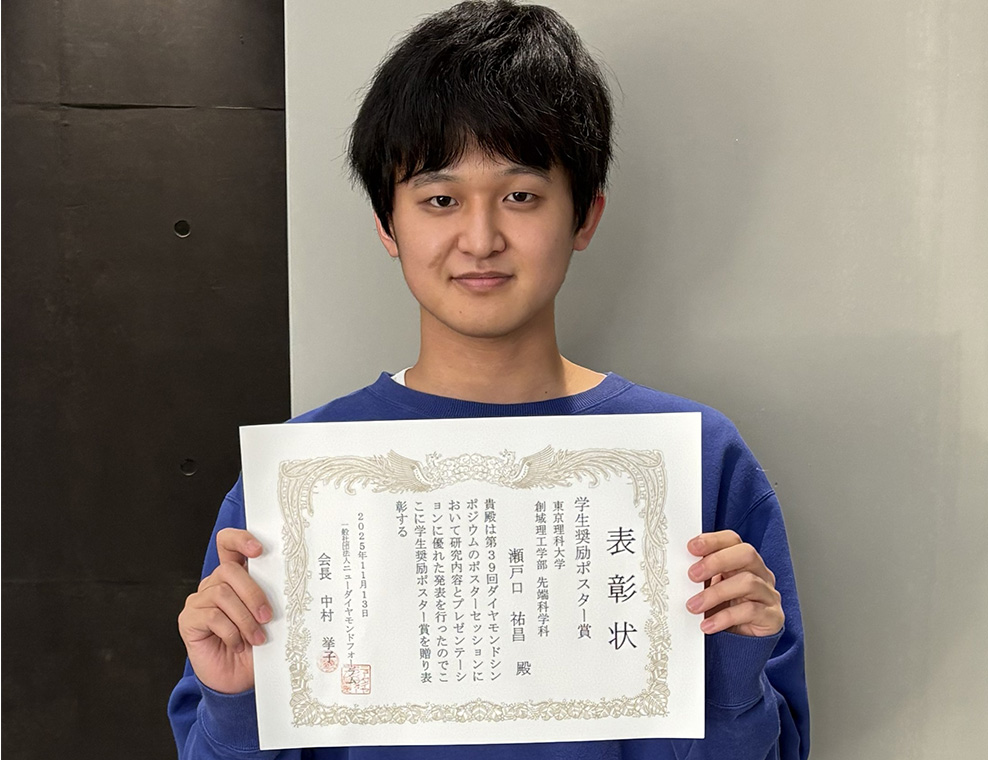 表彰状
学生奨励ポスター賞
東京理科大学
創域理工学部 先端科学科
瀬戸口 祐昌 殿
貴殿は第39回ダイヤモンドシン
ポジウムのポスターセッションに
おいて研究内容とプレゼンテーシ
ョンに優れた発表を行ったのでこ
こに学生奨励ポスター賞を贈り表
彰する
2025年11月13日
一般社団法人ニューダイヤモンドフォーラム
会長 中村 挙子